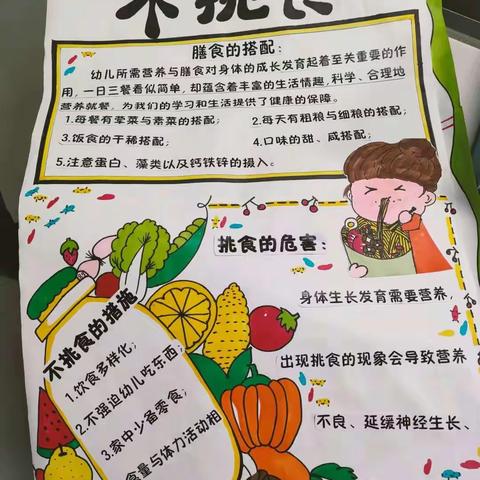 不挑食
膳食的搭配：
幼儿所需营养与膳食对身体的成长发育起着至关重要的作
用，一日三餐看似简单，却蕴含着丰富的生活情趣，科学、合理地
营养就餐，为我们的学习和生活提供了健康的保障。
1.每餐有荤菜与素菜的搭配；
2.每天有粗粮与细粮的搭配；
3.饭食的干稀搭配；
4.口味的甜、咸搭配；
5.注意蛋白、藻类以及钙铁锌的摄入。
挑食的危害：
身体生长发育需要营养，
出现挑食的现象会导致营养
不良、延缓神经生长、
不挑食的措施
1.饮食多样化；
2.不强迫幼儿吃东西；
3.家中少备零食；
食量与体力活动相